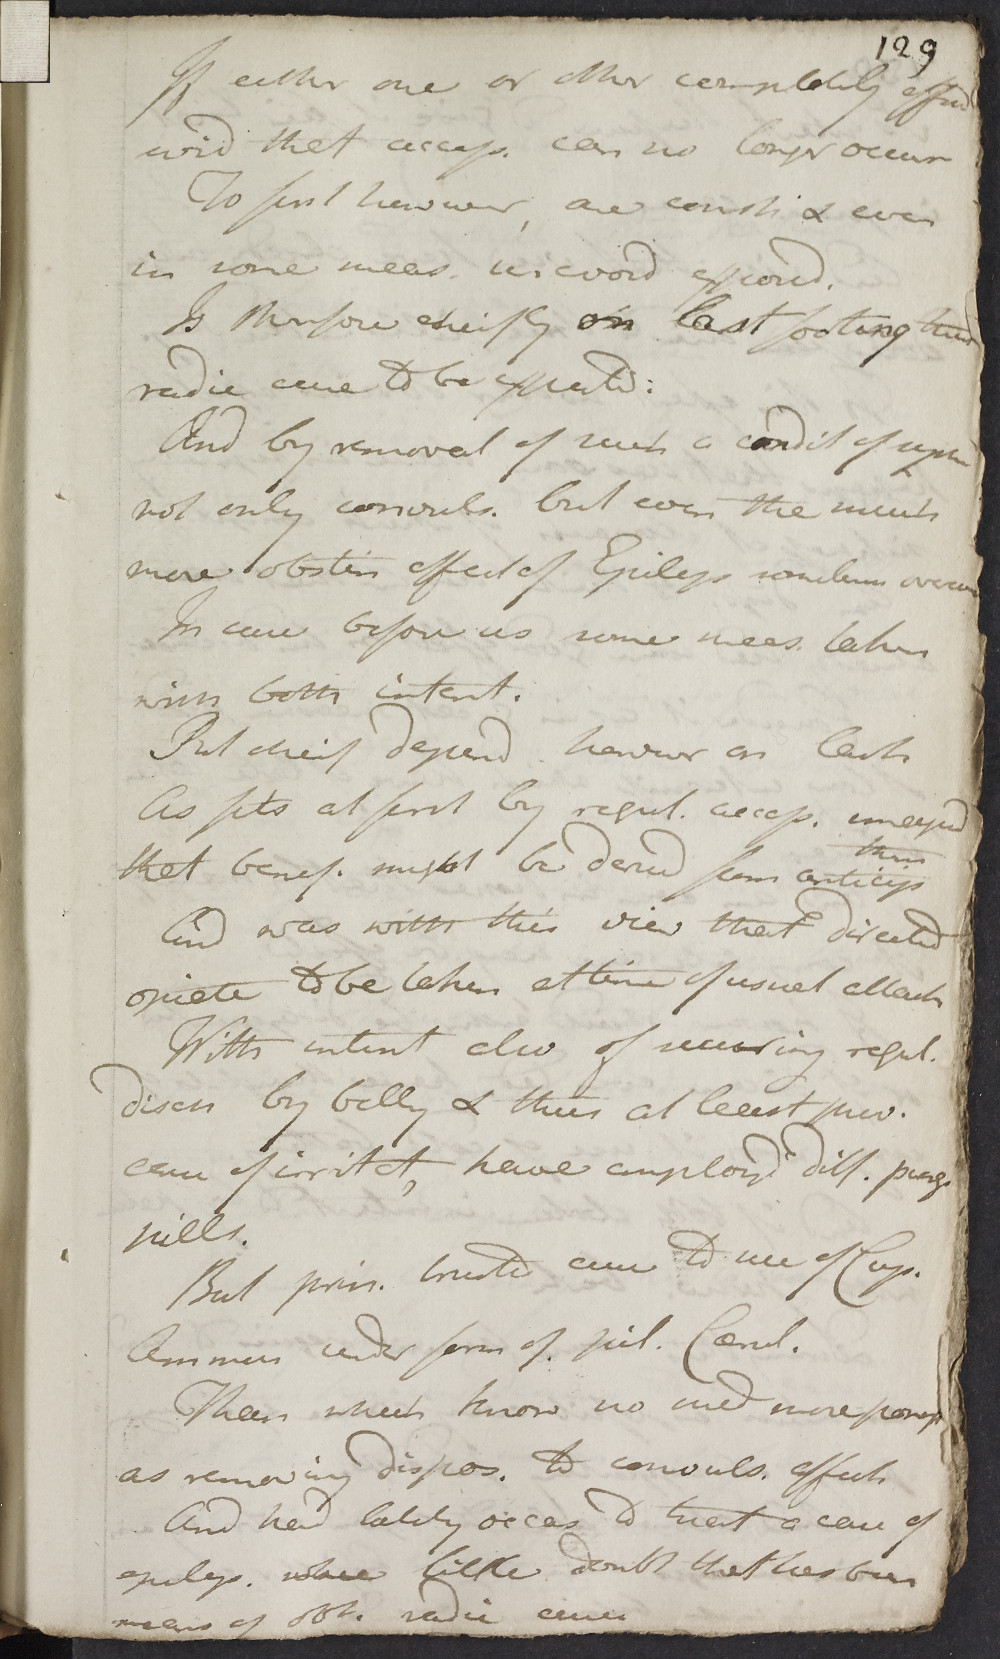 129
If either one or other completely effected
evid that access. can no longer occur
To first however, are consti & even
in some meas. unavoid expos'd.
Is therefore cheifly on last footing that
radic cure to be expected:
And by removal of such a condit of system
not only convuls. but even the much
more obstin affect of Epileps sometimes overcome
In case before us some meas. taken
with both intent.
But cheif depend however on last
As fits at first by regul. access. imagined
that benef. might be derived from anticip
them
And was with this view that directed
opiate to be taken at time of usual attack
With intent also of securing regul.
disch by belly & thus at least prev.
cause of irritat, have employd diff. purg
pills.
But prin. trusted cure to use of Cup.
Ammon under form of pil. Cærul.
Than which know no med more powerf
as removing dispos. to convuls. affect
And had lately occas to treat a case of
epileps. where little doubt that has been
means of obt. radic cure